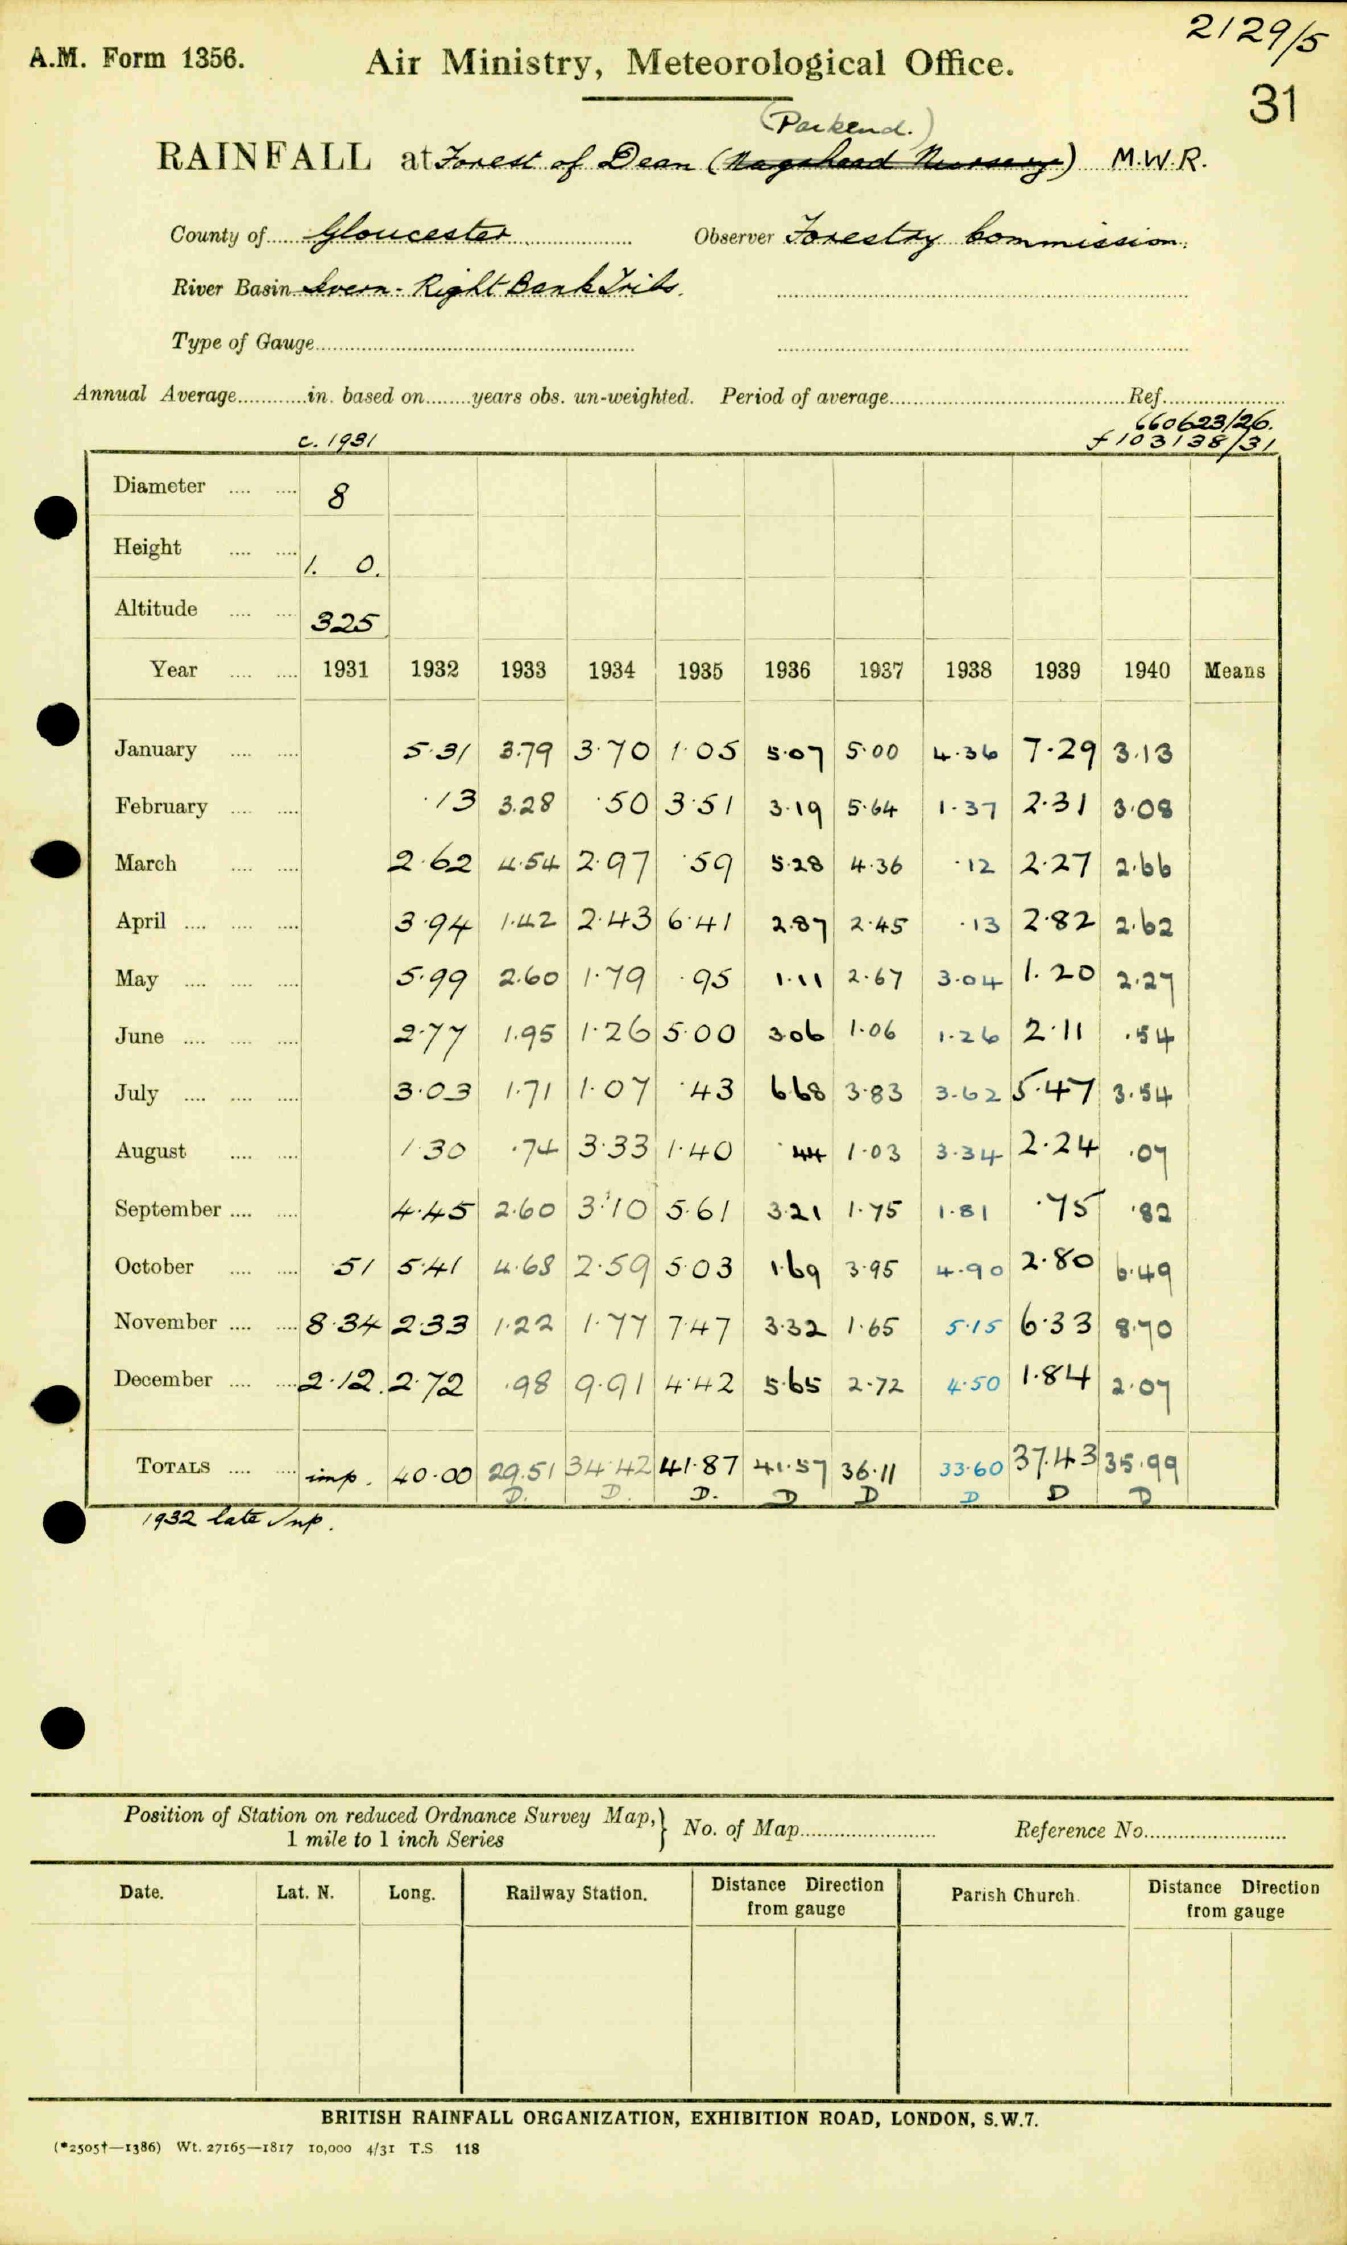 2129/5
A.M. Form 1356. Air Ministry, Meteorological Office.
31
(Parkend.)
RAINFALL at Forest of Dean (Nagshead Nursery) M.W.R.
County of Gloucester Observer Forestry Commission.
River Basin Severn - Right Bank Tribs.
Type of Gauge
Annual Average in. based on years obs. un-weighted. Period of average Ref.
660623/26.
c. 1931 f 103138/31
Diameter 8
Height 1. 0.
Altitude 325
Year 1931 1932 1933 1934 1935 1936 1937 1938 1939 1940 Means
January 5·31 3.79 3·70 1·05 5·07 5·00 4·36 7·29 3·13
February ·13 3.28 ·50 3·51 3·19 5·64 1·37 2·31 3·08
March 2·62 4·54 2·97 ·59 5·28 4·36 ·12 2·27 2·66
April 3·94 1·42 2·43 6·41 2·87 2·45 ·13 2·82 2·62
May 5·99 2·60 1·79 ·95 1·11 2·67 3·04 1·20 2·27
June 2·77 1·95 1·26 5·00 3·06 1·06 1·26 2·11 ·54
July 3·03 1·71 1·07 ·43 6·68 3·83 3·62 5·47 3·54
August 1·30 ·74 3·33 1·40 ·44 1·03 3·34 2·24 ·07
September 4·45 2·60 3·10 5·61 3·21 1·75 1·81 ·75 ·82
October ·51 5·41 4·68 2·59 5·03 1·69 3·95 4·90 2·80 6·49
November 8·34 2·33 1·22 1·77 7·47 3·32 1·65 5·15 6·33 8·70
December 2·12 2·72 ·98 9·91 4·42 5·65 2·72 4·50 1·84 2·07
TOTALS imp. 40·00 29·51 34·42 41·87 41·57 36·11 33·60 37·43 35·99
D. D. D. D D D D D
1932 late Inp.
Position of Station on reduced Ordnance Survey Map, No. of Map Reference No.
1 mile to 1 inch Series
Date. Lat. N. Long. Railway Station. Distance Direction from gauge Parish Church. Distance Direction from gauge
BRITISH RAINFALL ORGANIZATION, EXHIBITION ROAD, LONDON, S.W.7.
(*2505†—1386) Wt. 27165—1817 10,000 4/31 T.S 118